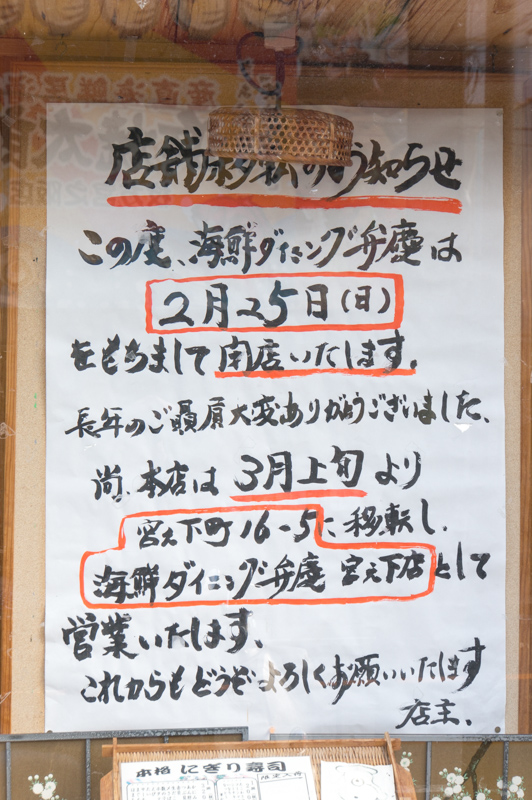 店舗移転のお知らせ
この度、海鮮ダイニング弁慶は
2月25日(日)
をもちまして閉店いたします。
長年のご贔屓大変ありがとうございました、
尚、本店は3月上旬より
宮之下町16-5に移転し、
海鮮ダイニング弁慶 宮之下店として
営業いたします、
これからもどうぞよろしくお願いいたします
店主、
本格 にぎり寿司